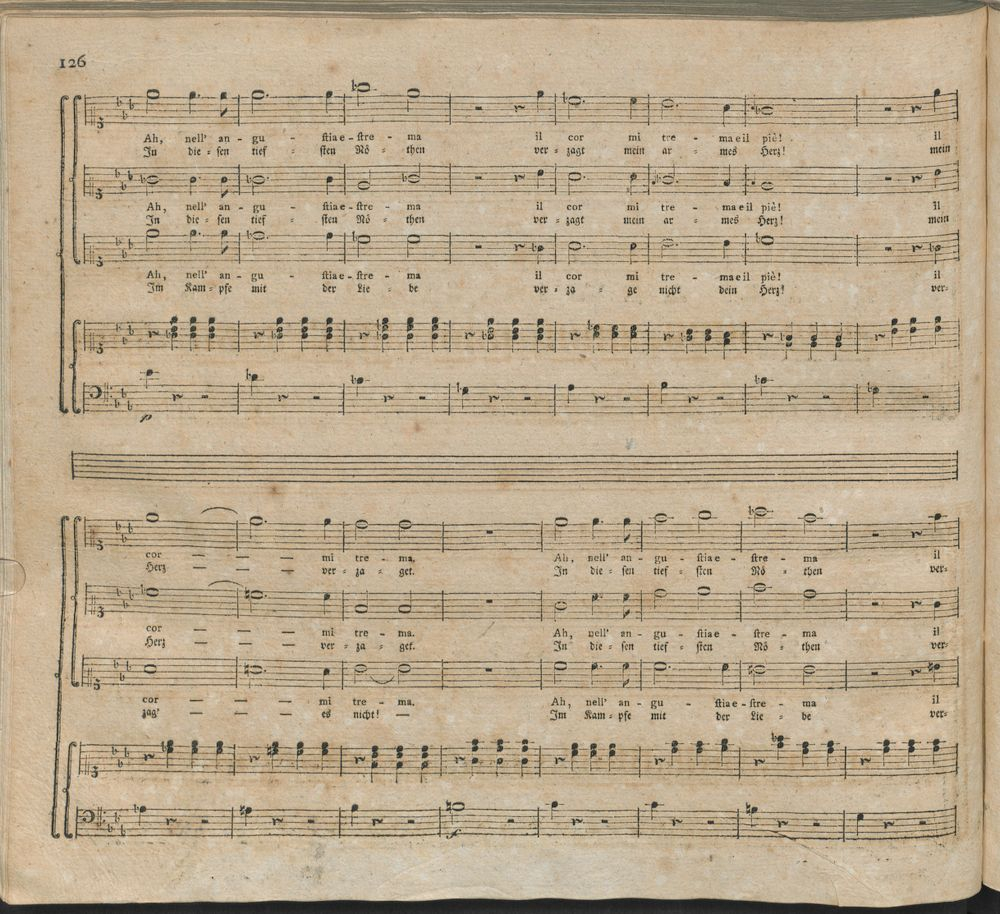 126
Ah, nell' an - gu - stia e - stre - ma il cor mi tre - ma e il piè! il
In die = sen tief = sten Nö = then ver = zagt mein ar = mes Herz! mein
Ah, nell' an - gu - stia e - stre - ma il cor mi tre - ma e il piè! il
In die = sen tief = sten Nö = then ver = zagt mein ar = mes Herz! mein
Ah, nell' an - gu - stia e - stre - ma il cor mi tre - ma e il piè! il
Im Kam = pfe mit der Lie = be ver = za = ge nicht dein Herz! ver=
p
cor — — — mi tre - ma. Ah, nell' an - gu - stia e - stre - ma il
Herz — — — ver = za = get. In die = sen tief = sten Nö = then ver=
cor — — — mi tre - ma. Ah, nell' an - gu - stia e - stre - ma il
Herz — — — ver = za = get. In die = sen tief = sten Nö = then ver=
cor — — — mi tre - ma. Ah, nell' an - gu - stia e - stre - ma il
zag' — — — es nicht! — Im Kam = pfe mit der Lie = be ver=
f